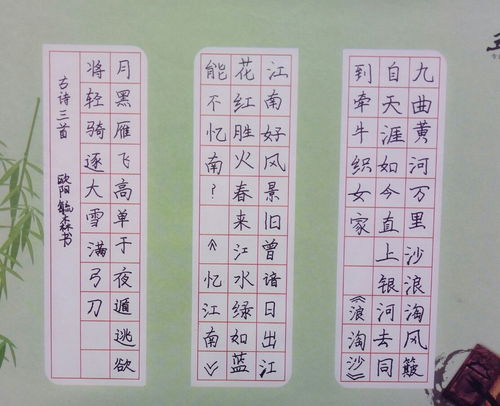 九曲黄河万里沙浪淘风簸
自天涯如今直上银河去同
到牵牛织女家《浪淘沙》
江南好风景旧曾谙日出江
花红胜火春来江水绿如蓝
能不忆南?《忆江南》
月黑雁飞高单于夜遁逃欲
将轻骑逐大雪满弓刀
古诗三首 欧阳毓森书